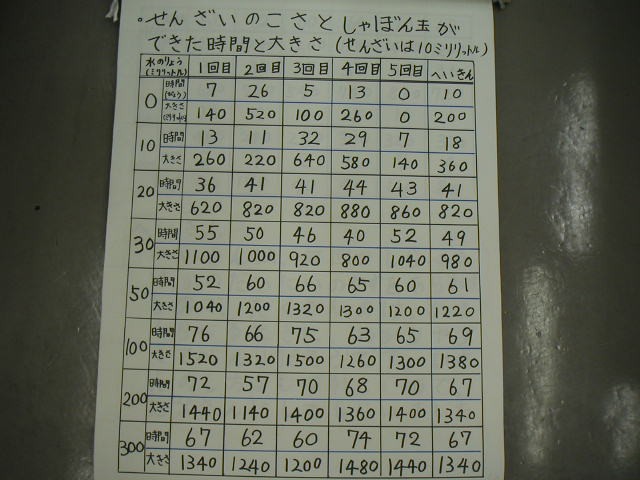 ・せんざいのこさとしゃぼん玉が
できた時間と大きさ(せんざいは10ミリリットル)
水のりょう(ミリリットル) 1回目 2回目 3回目 4回目 5回目 へいきん
0 時間(びょう) 7 26 5 13 0 10
大きさ(ミリリットル) 140 520 100 260 0 200
10 時間 13 11 32 29 7 18
大きさ 260 220 640 580 140 360
20 時間 36 41 41 44 43 41
大きさ 620 820 820 880 860 820
30 時間 55 50 46 40 52 49
大きさ 1100 1000 920 800 1040 980
50 時間 52 60 66 65 60 61
大きさ 1040 1200 1320 1300 1200 1220
100 時間 76 66 75 63 65 69
大きさ 1520 1320 1500 1260 1300 1380
200 時間 72 57 70 68 70 67
大きさ 1440 1140 1400 1360 1400 1340
300 時間 67 62 60 74 72 67
大きさ 1340 1240 1200 1480 1440 1340